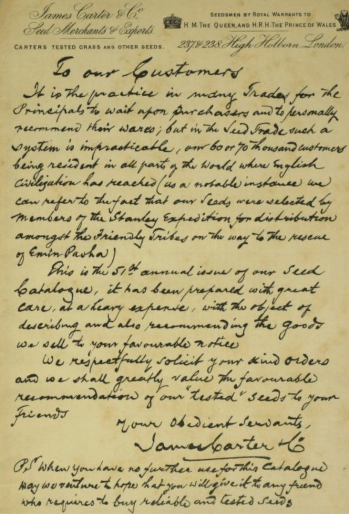 James Carter & Co.
Seed Merchants & Experts
CARTERS TESTED GRASS AND OTHER SEEDS.
SEEDSMEN BY ROYAL WARRANTS TO
H.M. THE QUEEN, AND H.R.H. THE PRINCE OF WALES
237 & 238, High Holborn, London.
To our Customers
It is the practice in many Trades for the
Principals to wait upon purchasers and to personally
recommend their wares; but in the Seed Trade such a
system is impracticable, our 60 or 70 thousand customers
being resident in all part of the World where English
Civilization has reached (as a notable instance we
can refer to the fact that our Seeds were selected by
members of the Stanley Expedition for distribution
amongst the Friendly Tribes on the way to the rescue
of Emin Pasha)
This is the 51st annual issue of our Seed
Catalogue, it has been prepared with great
care, at a heavy expense, with the object of
describing and also recommending the goods
we sell to your favourable notice
We respectfully solicit your kind orders
and we shall greatly value the favourable
recommendation of our "tested" seeds to your
friends
Your Obedient Servants,
James Carter & Co
P.S. When you have no further use for this Catalogue
may we venture to hope that you will give it to any friend
who requires to buy reliable and tested Seeds